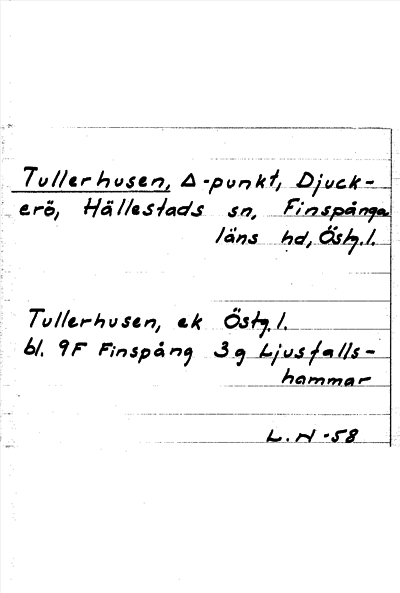 Tullerhusen, Δ-punkt, Djuck-
erö, Hällestads sn, Finspånga
läns hd, Östg.l.
Tullerhusen, ek Östg.l.
bl. 9F Finspång 3g Ljusfalls-
hammar
L.N -58